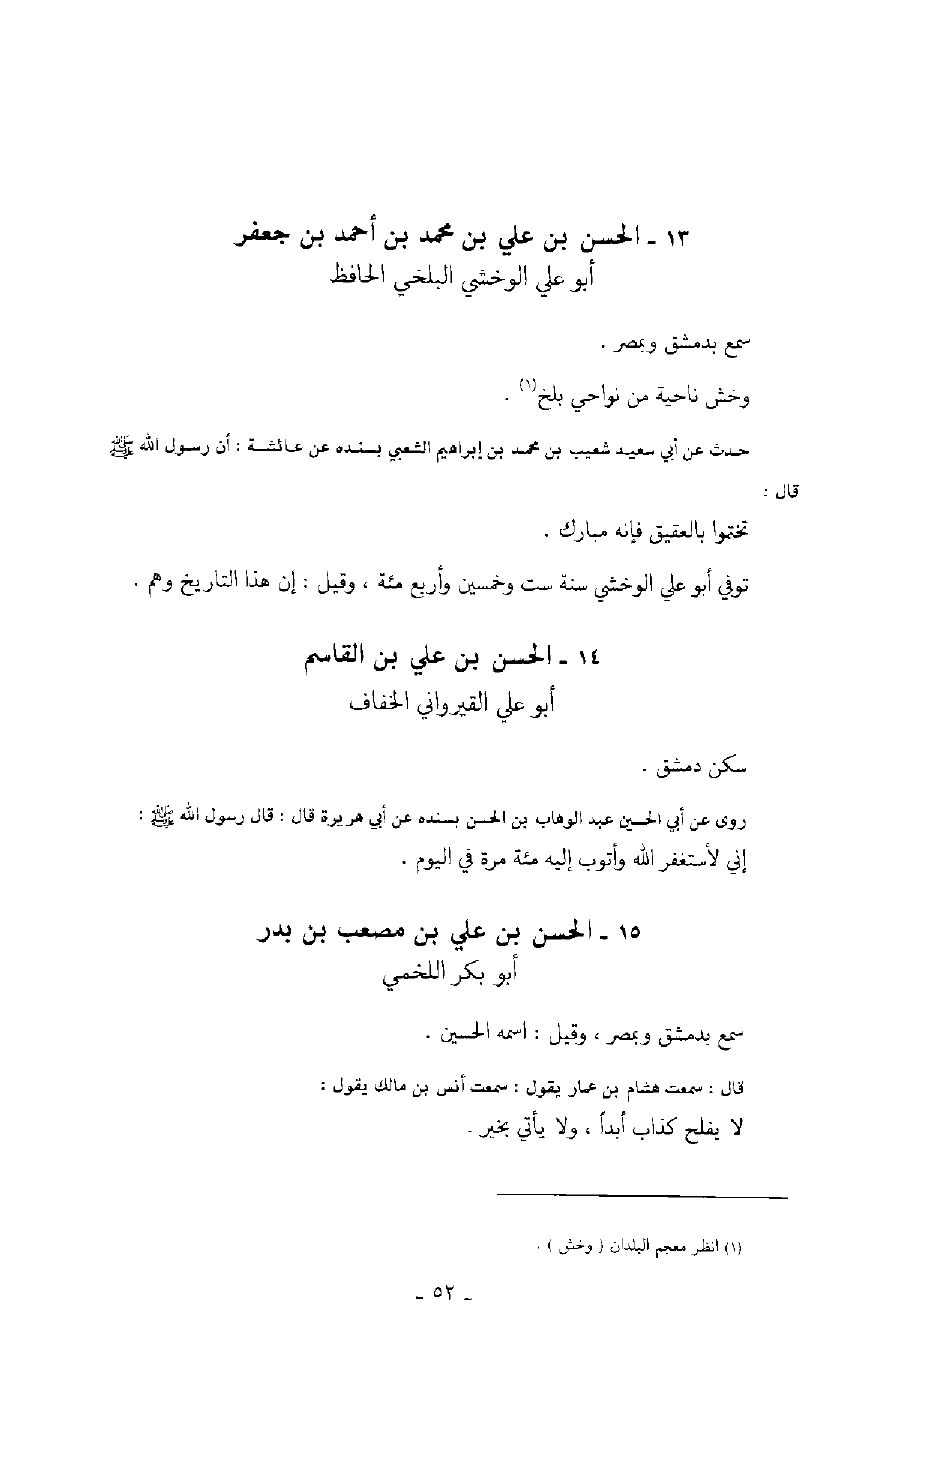 ١٣ ـ الحسن بن علي بن محمد بن أحمد بن جعفر
أبو علي الوخشي البلخي الحافظ
سمع بدمشق وبمصر .
وخش ناحية من نواحي بلخ(١) .
حدث عن أبي سعيد شعيب بن محمد بن إبراهيم الشعبي بسنده عن عائشة : أن رسول الله ﷺ
قال :
تختموا بالعقيق فإنه مبارك .
توفي أبو علي الوخشي سنة ست وخمسين وأربع مئة ، وقيل : إن هذا التاريخ وهم .
١٤ ـ الحسن بن علي بن القاسم
أبو علي القيرواني الخفاف
سكن دمشق .
روى عن أبي الحسين عبد الوهاب بن الحسن بسنده عن أبي هريرة قال : قال رسول الله ﷺ :
إني لأستغفر الله وأتوب إليه مئة مرة في اليوم .
١٥ ـ الحسن بن علي بن مصعب بن بدر
أبو بكر اللخمي
سمع بدمشق وبمصر ، وقيل : اسمه الحسين .
قال : سمعت هشام بن عمار يقول : سمعت أنس بن مالك يقول :
لا يفلح كذاب أبداً ، ولا يأتي بخير .
(١) انظر معجم البلدان ( وخش ) .
ـ ٥٢ ـ